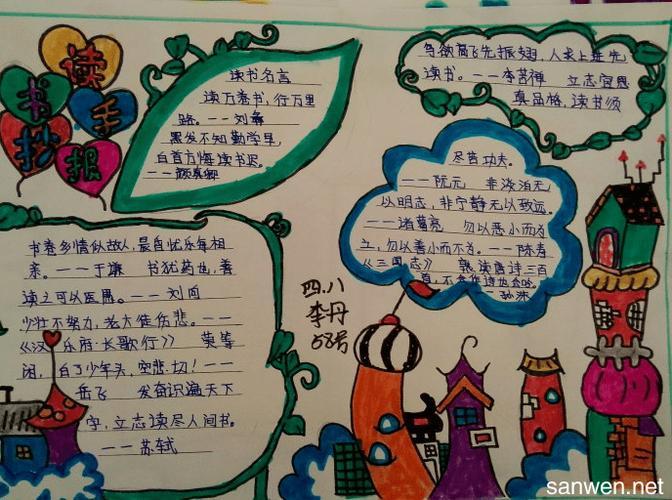 读
书
手
抄
报
读书名言
读万卷书，行万里
路。——刘彝
黑发不知勤学早，
白首方悔读书迟。
——颜真卿
鸟欲高飞先振翅，人求上进先
读书。——李苦禅 立志宜思
真品格，读书须
尽苦功夫。
——阮元 非淡泊无
以明志，非宁静无以致远。
——诸葛亮 勿以恶小而为
之，勿以善小而不为。——陈寿
《三国志》 熟读唐诗三百
首，不会作诗也会吟。
——孙洙
书卷多情似故人，晨昏忧乐每相
亲。——于谦 书犹药也，善
读之可以医愚。——刘向
少壮不努力，老大徒伤悲。——
《汉乐府·长歌行》 莫等
闲，白了少年头，空悲切！——
岳飞 发奋识遍天下
字，立志读尽人间书。
——苏轼
四.八
李丹
58号
sanwen.net